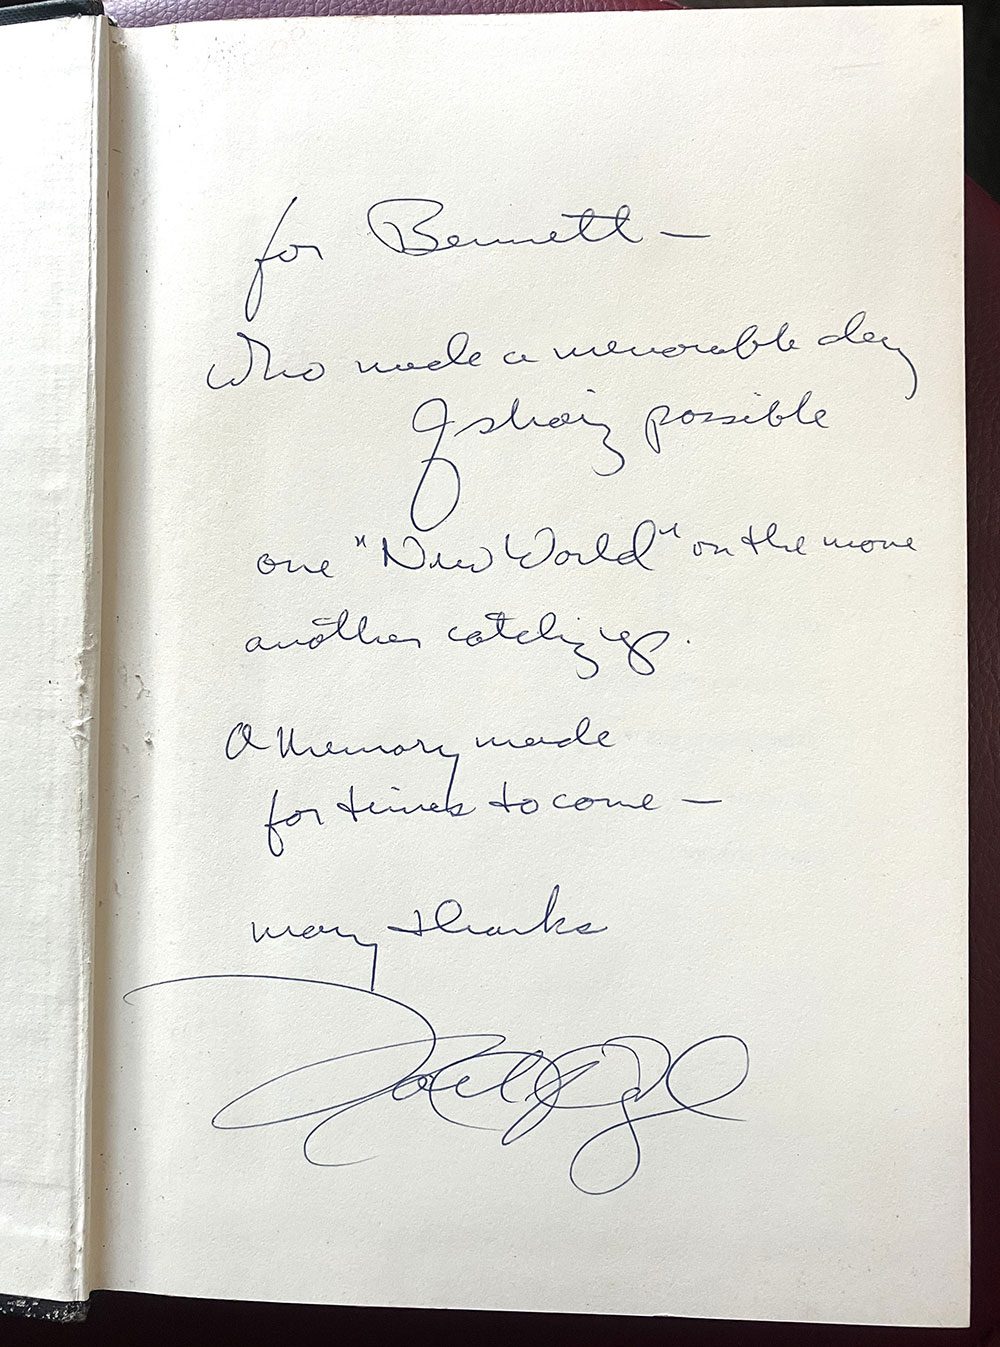 for Bennett —
who made a memorable day
of sharing possible
one "New World" on the move
another catching up.
A memory made
for times to come —
many thanks